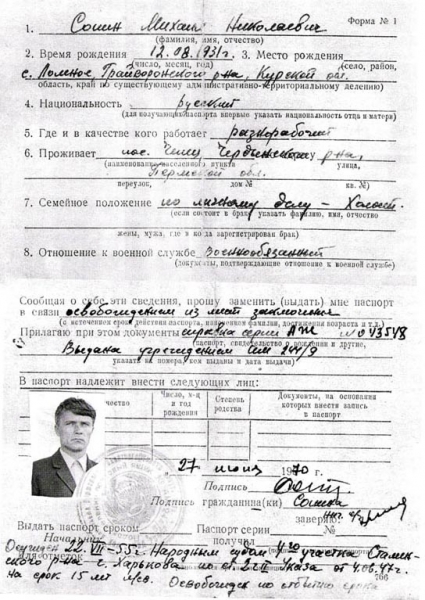 Форма № 1
1. Сошин Михаил Николаевич
(фамилия, имя, отчество)
2. Время рождения 12.08.1931г. 3. Место рождения
(число, месяц, год) (село, район,
с. Ломное, Грайворонского р-на, Курской обл.
область, край по существующему административно-территориальному делению)
4. Национальность русский
(для получающих паспорта впервые указать национальность отца и матери)
5. Где и в качестве кого работает разнорабочий
6. Проживает пос. Чердынского р-на,
(наименование населенного пункта улица,
Пермской обл.
переулок, дом № кв. №)
7. Семейное положение по личному делу - Холост.
(если состоит в браке указать фамилию, имя, отчество
жены, мужа, где и когда зарегистрирован брак)
8. Отношение к военной службе Военнообязанный
(документы, подтверждающие отношение к военной службе)
Сообщая о себе эти сведения, прошу заменить (выдать) мне паспорт
в связи освобождением из мест заключения
(с истечением срока действия паспорта, изменением фамилии, достижения возраста и т.д.)
Прилагаю при этом документы справка серии АЖ № 043548
(паспорт, свидетельство о рождении и другие,
Выдана учреждением
указать их номера, кем выданы и дата выдачи)
В паспорт надлежит внести следующих лиц:
чество
Число, м-ц и год рождения
Степень родства
Документы, на основания которых внести запись в паспорт
27 1970 г.
Подпись
Подпись гражданина(ки) Сошина
заверяю:
Выдать паспорт сроком Паспорт серии
Начальник получал
Осужден 22.VII-55г. Народным судом 4го участка
Для отметок
р-на г. Харькова по ст. 2 ч II Указа от 4.06.47г.
на срок 15 лет Освобожден по отбытию срока